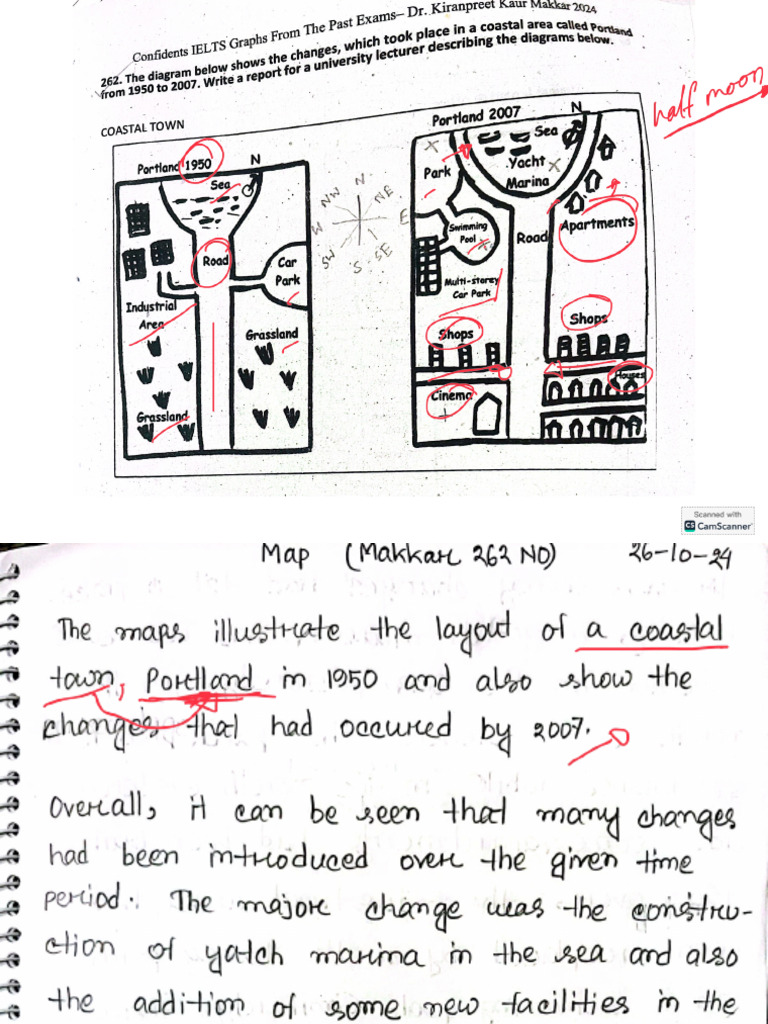 Confidents IELTS Graphs From The Past Exams– Dr. Kiranpreet Kaur Makkar 2024
262. The diagram below shows the changes, which took place in a coastal area called Portland
from 1950 to 2007. Write a report for a university lecturer describing the diagrams below.
half moon
COASTAL TOWN
Portland 1950
N
Sea
Road
Car
Park
Industrial
Area
Grassland
Grassland
N
NE
E
SE
S
SW
W
NW
Portland 2007
N
Sea
Yacht
Marina
Park
Swimming
Pool
Road
Apartments
Multi-storey
Car Park
Shops
Shops
Houses
Cinema
Scanned with
CS CamScanner
Map (Makkar 262 NO) 26-10-24
The maps illustrate the layout of a coastal
town, Portland in 1950 and also show the
changes that had occured by 2007.
Overall, it can be seen that many changes
had been introduced over the given time
period. The major change was the constru-
ction of yatch marina in the sea and also
the addition of some new facilities in the